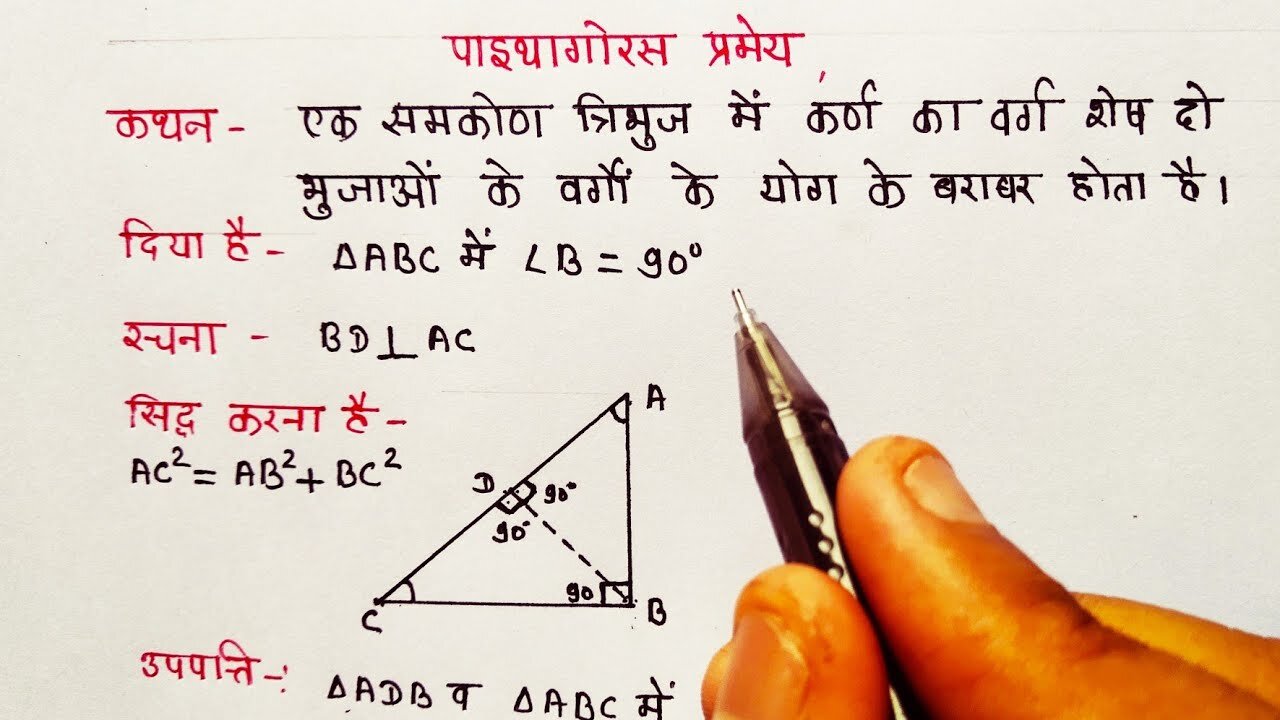 पाइथागोरस प्रमेय
कथन - एक समकोण त्रिभुज में कर्ण का वर्ग शेष दो
भुजाओं के वर्गों के योग के बराबर होता है।
दिया है - ΔABC में ∠B = 90°
रचना - BD⊥AC
सिद्ध करना है -
AC² = AB² + BC²
A
D 90°
90°
90 B
C
उपपत्ति -: ΔADB व ΔABC में